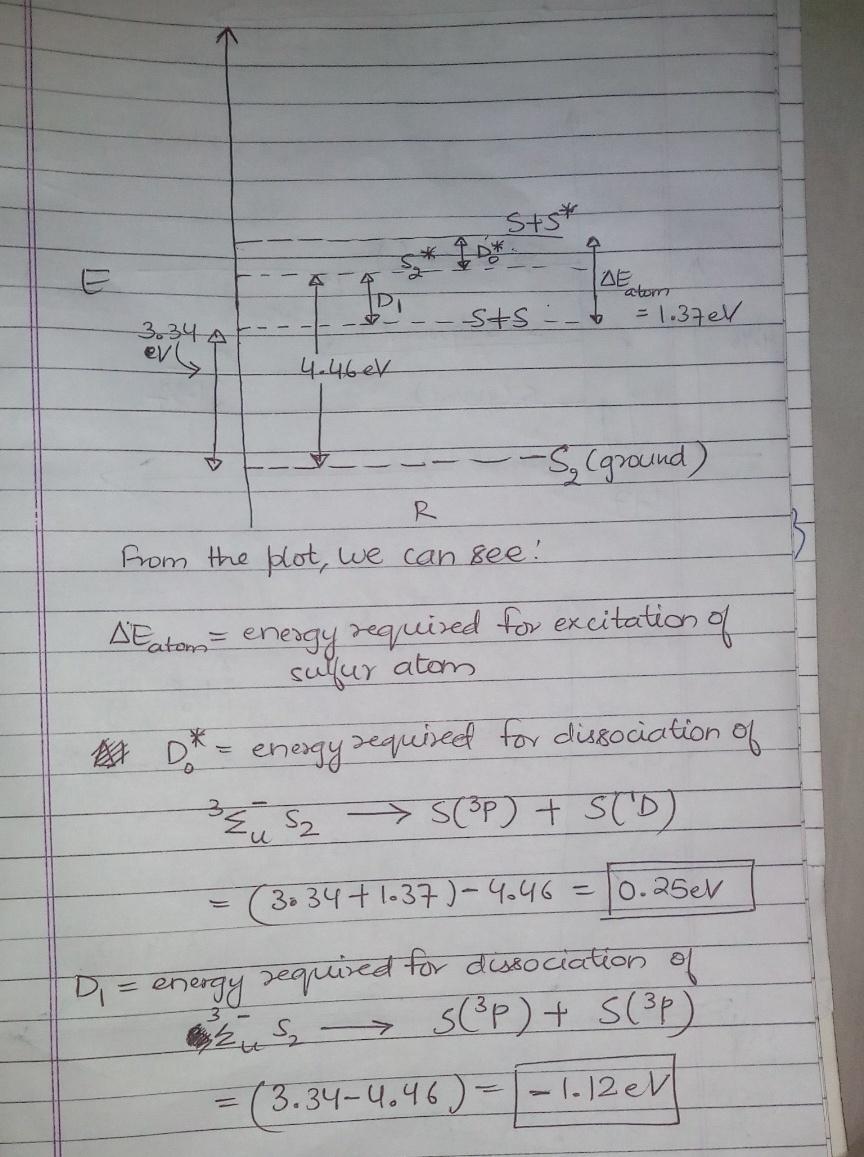 S+S*
S₂* D₀*
E
ΔE atom
D₁
= 1.37eV
S+S
3.34
eV
4.46eV
S₂ (ground)
R
From the plot, we can see:
ΔE atom = energy required for excitation of
sulfur atom
D₀* = energy required for dissociation of
³Σᵤ⁻ S₂ → S(³P) + S(¹D)
= (3.34+1.37)-4.46 = 0.25eV
D₁ = energy required for dissociation of
³Σᵤ⁻ S₂ → S(³P) + S(³P)
= (3.34-4.46) = -1.12eV